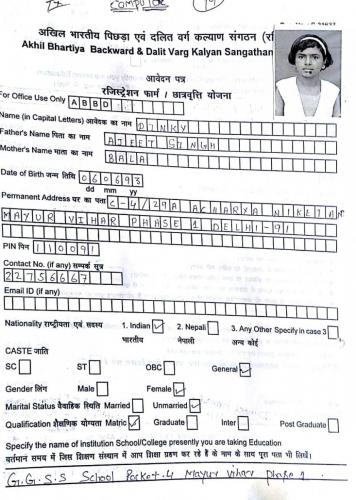 computer
अखिल भारतीय पिछड़ा एवं दलित वर्ग कल्याण संगठन
Akhil Bhartiya Backward & Dalit Varg Kalyan Sangathan
आवेदन पत्र
रजिस्ट्रेशन फार्म / छात्रवृत्ति योजना
For Office Use Only A B B D
Name (in Capital Letters) आवेदक का नाम DINKY
Father's Name पिता का नाम AJEET SINGH
Mother's Name माता का नाम BALA
Date of Birth जन्म तिथि 060693
dd mm yy
Permanent Address घर का पता C-4/29A ACHARYA NIKETAN
MAYUR VIHAR PHASE 1 DELHI-91
PIN पिन 110091
Contact No. (if any) सम्पर्क सूत्र
22756667
Email ID (if any)
Nationality राष्ट्रीयता एवं सदस्य 1. Indian ✓ 2. Nepali 3. Any Other Specify in case 3
भारतीय नेपाली अन्य कोई
CASTE जाति
SC ST OBC General ✓
Gender लिंग Male Female ✓
Marital Status वैवाहिक स्थिति Married Unmarried ✓
Qualification शैक्षणिक योग्यता Matric ✓ Graduate Inter Post Graduate
Specify the name of institution School/College presently you are taking Education
वर्तमान समय में जिस शिक्षण संस्थान में आप शिक्षा ग्रहण कर रहे हैं के नाम के साथ पूरा पता भी लिखें।
G.G.S.S School Pocket.4 Mayur Vihar Phase 1